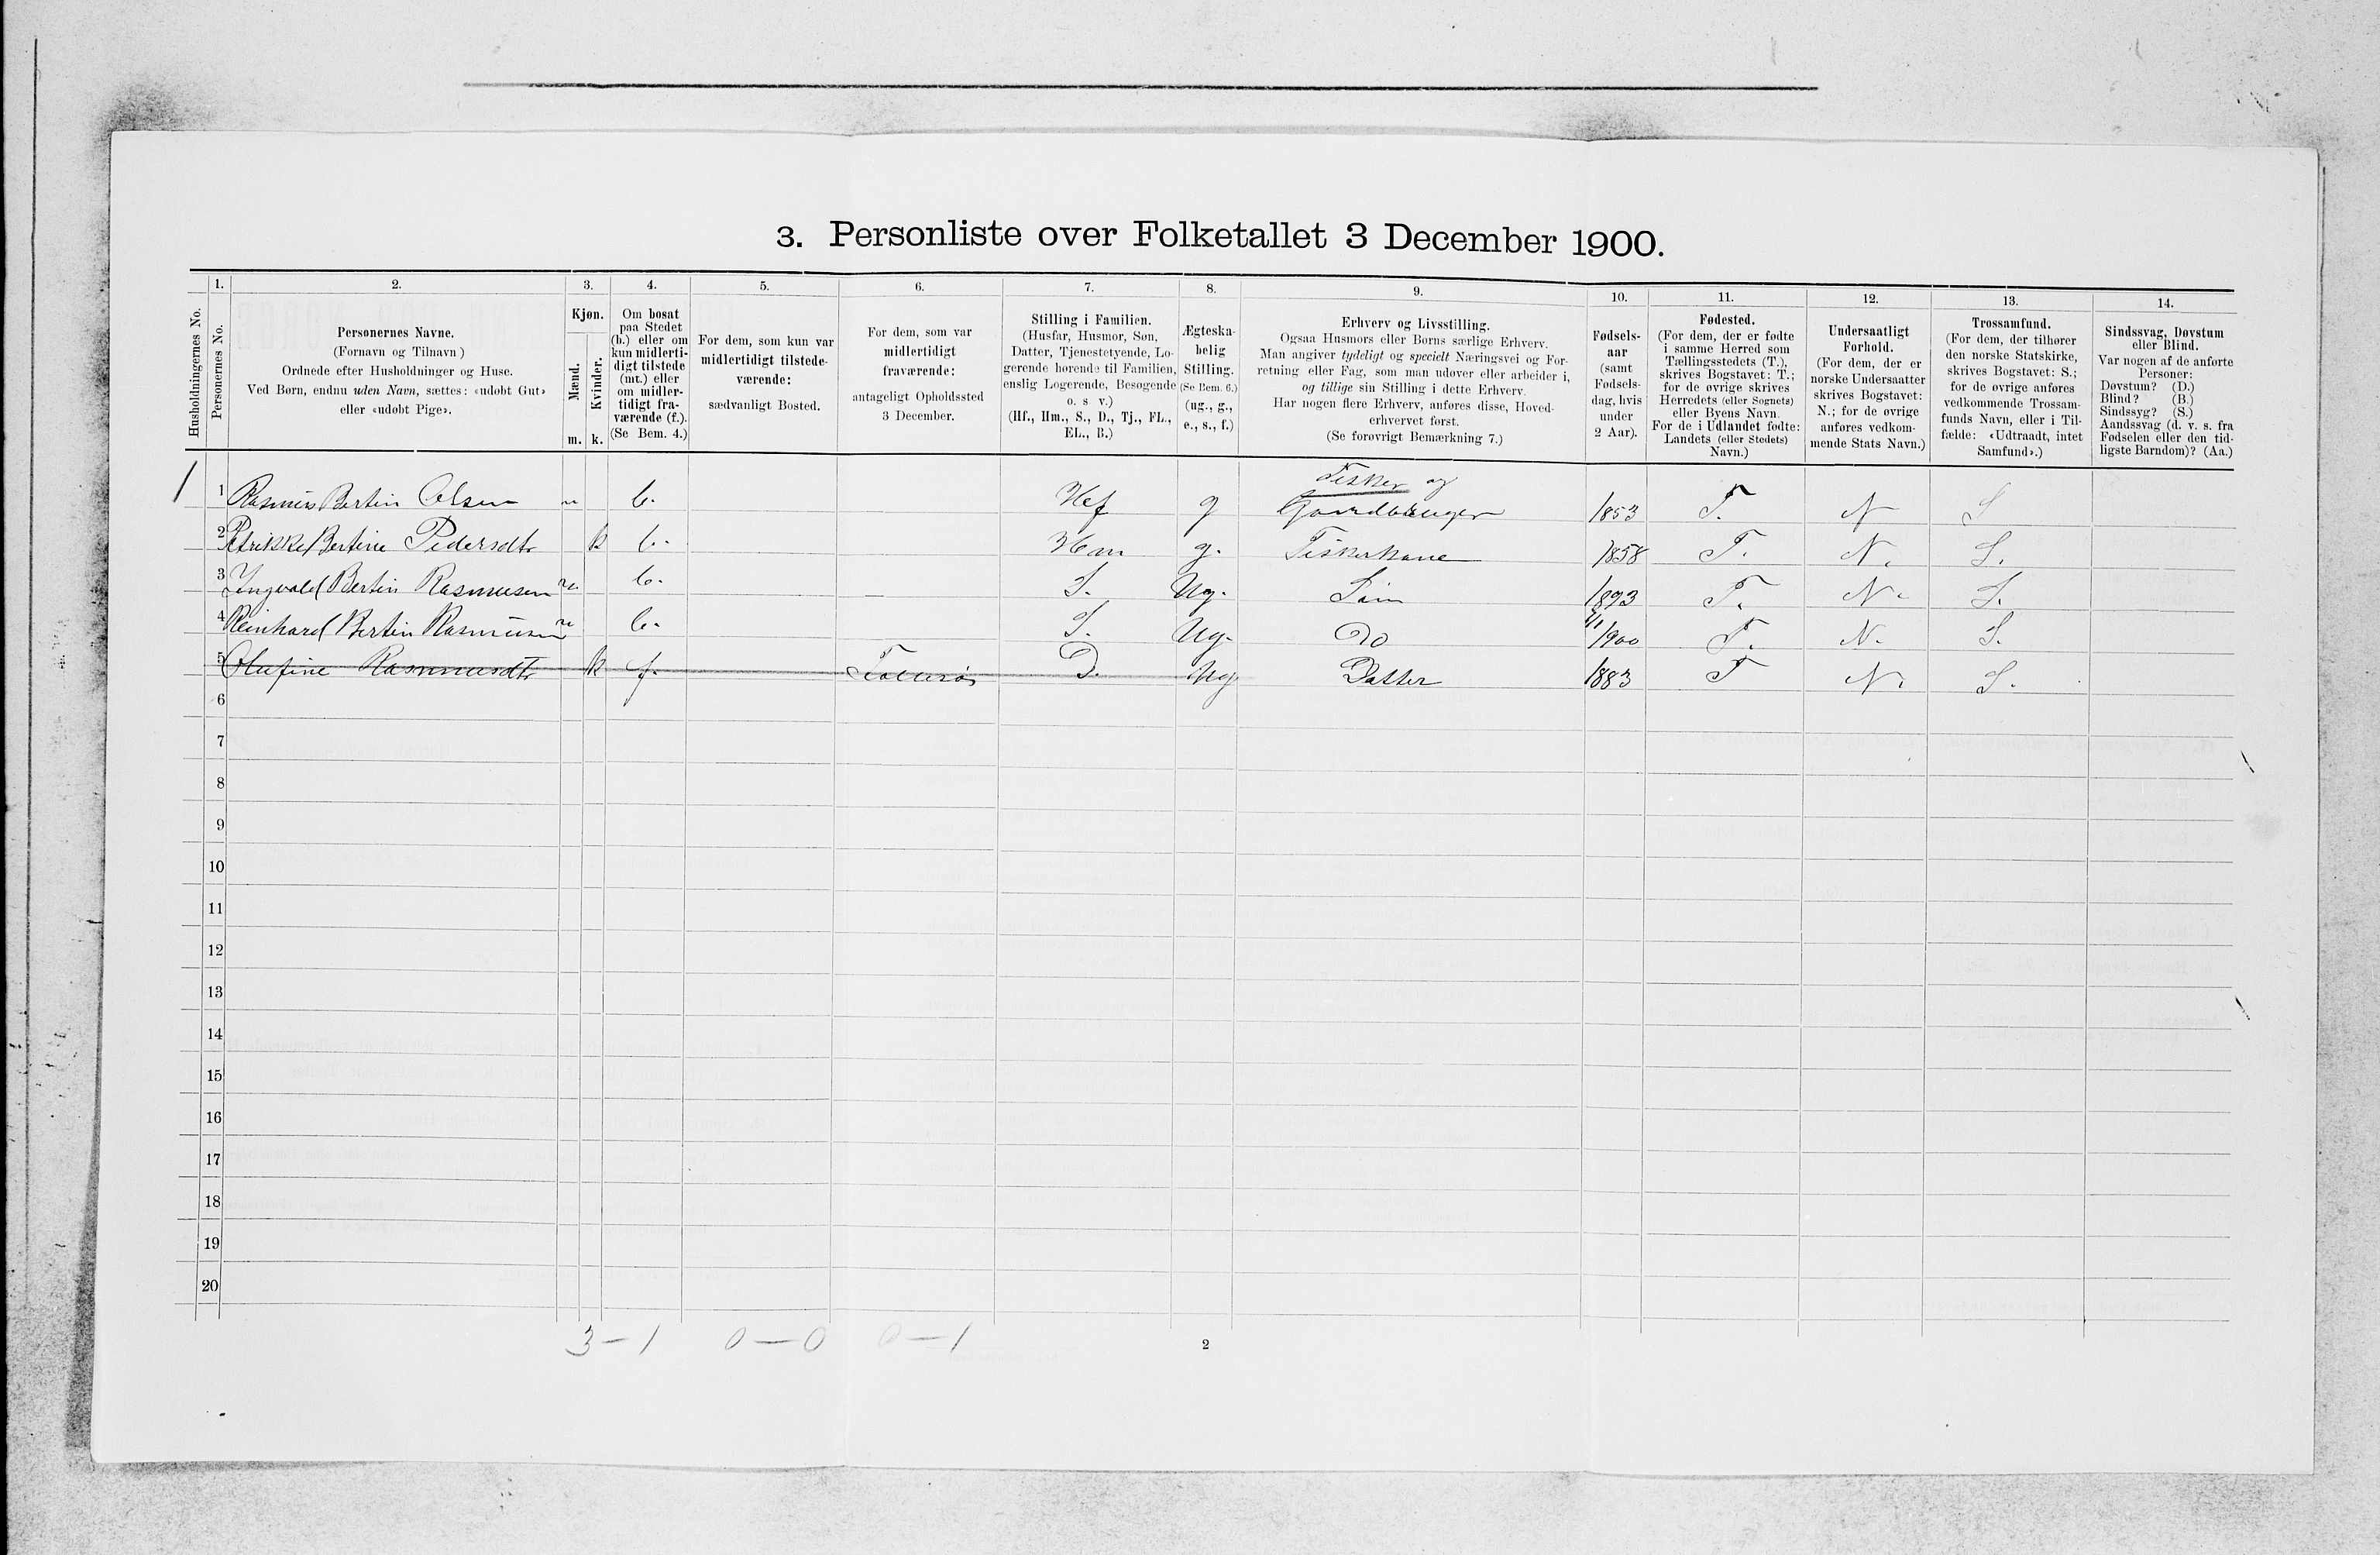 3. Personliste over Folketallet 3 December 1900.
Husholdningernes No.
1.
Personernes No.
2.
Personernes Navne.
(Fornavn og Tilnavn)
Ordnede efter Husholdninger og Huse.
Ved Børn, endnu uden Navn, sættes: «udøbt Gut»
eller «udøbt Pige».
3.
Kjøn.
Mænd.
Kvinder.
m. k.
4.
Om bosat
paa Stedet
(b.) eller om
kun midlerti-
digt tilstede
(mt.) eller
om midler-
tidigt fra-
værende (f.).
(Se Bem. 4.)
5.
For dem, som kun var
midlertidigt tilstede-
værende:
sædvanligt Bosted.
6.
For dem, som var
midlertidigt
fraværende:
antageligt Opholdssted
3 December.
7.
Stilling i Familien.
(Husfar, Husmor, Søn,
Datter, Tjenestetyende, Lo-
gerende hørende til Familien,
enslig Logerende, Besøgende
o. s v.)
(Hf., Hm., S., D., Tj., FL.,
EL., B.)
8.
Ægteska-
belig
Stilling.
(Se Bem. 6.)
(ug., g.,
e., s., f.)
9.
Erhverv og Livsstilling.
Ogsaa Husmors eller Børns særlige Erhverv.
Man angiver tydeligt og specielt Næringsvei og For-
retning eller Fag, som man udøver eller arbeider i,
og tillige sin Stilling i dette Erhverv.
Har nogen flere Erhverv, anføres disse, Hoved-
erhvervet først.
(Se forøvrigt Bemærkning 7.)
10.
Fødsels-
aar
(samt
Fødsels-
dag, hvis
under
2 Aar).
11.
Fødested.
(For dem, der er fødte
i samme Herred som
Tællingsstedets (T.),
skrives Bogstavet: T.;
for de øvrige skrives
Herredets (eller Sognets)
eller Byens Navn.
For de i Udlandet fødte:
Landets (eller Stedets)
Navn.)
12.
Undersaatligt
Forhold.
(For dem, der er
norske Undersaatter
skrives Bogstavet:
N.; for de øvrige
anføres vedkom-
mende Stats Navn.)
13.
Trossamfund.
(For dem, der tilhører
den norske Statskirke,
skrives Bogstavet: S.;
for de øvrige anføres
vedkommende Trossam-
funds Navn, eller i Til-
fælde: «Udtraadt, intet
Samfund».)
14.
Sindssvag, Døvstum
eller Blind.
Var nogen af de anførte
Personer:
Døvstum? (D.)
Blind? (B.)
Sindssyg? (S.)
Aandssvag (d. v. s. fra
Fødselen eller den tid-
ligste Barndom)? (Aa.)
Fisker og
1 1 Rasmus Bertin Olsen m b. Hf g Gaardbruger 1853 T. N S
2 Petrikke Bertine Pedersdtr k b. Hm g. Fiskerkone 1858 T. N. S.
3 Ingvald Bertin Rasmusen m b. S. Ug. Søn 1893 T. N. S.
4 Reinhard Bertin Rasmusen m b. S. Ug. Do 1900 T. N. S.
5 Olufine Rasmusdtr k f. D. Ug Datter 1883 T N. S.
6
7
8
9
10
11
12
13
14
15
16
17
18
19
20
3 – 1 0 – 0 0 – 1 2